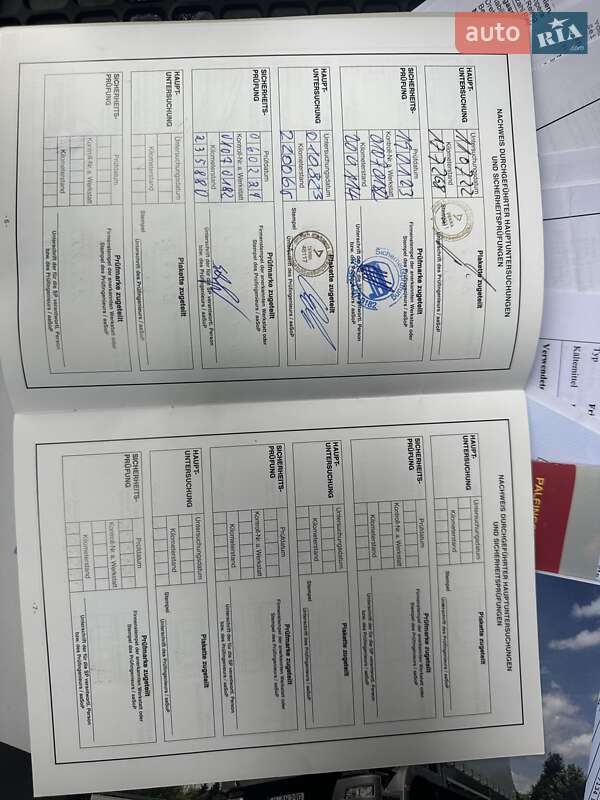 auto RIA.com
NACHWEIS DURCHGEFÜHRTER HAUPTUNTERSUCHUNGEN
UND SICHERHEITSPRÜFUNGEN
HAUPT-
UNTERSUCHUNG
Untersuchungsdatum
Kilometerstand
Stempel
Plakette zugeteilt
Unterschrift des Prüfingenieurs / aaSoP
SICHERHEITS-
PRÜFUNG
Prüfdatum
Kontroll-Nr. a. Werkstatt
Kilometerstand
Prüfmarke zugeteilt
Firmenstempel der anerkannten Werkstatt oder
Stempel des Prüfingenieurs / aaSoP
Unterschrift der für die SP verantwortl. Person
bzw. des Prüfingenieurs / aaSoP
HAUPT-
UNTERSUCHUNG
Untersuchungsdatum
010823
Kilometerstand
220065
Stempel
Plakette zugeteilt
Unterschrift des Prüfingenieurs / aaSoP
SICHERHEITS-
PRÜFUNG
Prüfdatum
060224
Kontroll-Nr. a. Werkstatt
Kilometerstand
235880
Prüfmarke zugeteilt
Firmenstempel der anerkannten Werkstatt oder
Stempel des Prüfingenieurs / aaSoP
Unterschrift der für die SP verantwortl. Person
bzw. des Prüfingenieurs / aaSoP
HAUPT-
UNTERSUCHUNG
Untersuchungsdatum
Kilometerstand
Stempel
Plakette zugeteilt
Unterschrift des Prüfingenieurs / aaSoP
SICHERHEITS-
PRÜFUNG
Prüfdatum
Kontroll-Nr. a. Werkstatt
Kilometerstand
Prüfmarke zugeteilt
Firmenstempel der anerkannten Werkstatt oder
Stempel des Prüfingenieurs / aaSoP
Unterschrift der für die SP verantwortl. Person
bzw. des Prüfingenieurs / aaSoP
- 6 -
NACHWEIS DURCHGEFÜHRTER HAUPTUNTERSUCHUNGEN
UND SICHERHEITSPRÜFUNGEN
HAUPT-
UNTERSUCHUNG
Untersuchungsdatum
Kilometerstand
Stempel
Plakette zugeteilt
Unterschrift des Prüfingenieurs / aaSoP
SICHERHEITS-
PRÜFUNG
Prüfdatum
Kontroll-Nr. a. Werkstatt
Kilometerstand
Prüfmarke zugeteilt
Firmenstempel der anerkannten Werkstatt oder
Stempel des Prüfingenieurs / aaSoP
Unterschrift der für die SP verantwortl. Person
bzw. des Prüfingenieurs / aaSoP
HAUPT-
UNTERSUCHUNG
Untersuchungsdatum
Kilometerstand
Stempel
Plakette zugeteilt
Unterschrift des Prüfingenieurs / aaSoP
SICHERHEITS-
PRÜFUNG
Prüfdatum
Kontroll-Nr. a. Werkstatt
Kilometerstand
Prüfmarke zugeteilt
Firmenstempel der anerkannten Werkstatt oder
Stempel des Prüfingenieurs / aaSoP
Unterschrift der für die SP verantwortl. Person
bzw. des Prüfingenieurs / aaSoP
HAUPT-
UNTERSUCHUNG
Untersuchungsdatum
Kilometerstand
Stempel
Plakette zugeteilt
Unterschrift des Prüfingenieurs / aaSoP
SICHERHEITS-
PRÜFUNG
Prüfdatum
Kontroll-Nr. a. Werkstatt
Kilometerstand
Prüfmarke zugeteilt
Firmenstempel der anerkannten Werkstatt oder
Stempel des Prüfingenieurs / aaSoP
Unterschrift der für die SP verantwortl. Person
bzw. des Prüfingenieurs / aaSoP
- 7 -
Typ
Kältemittel